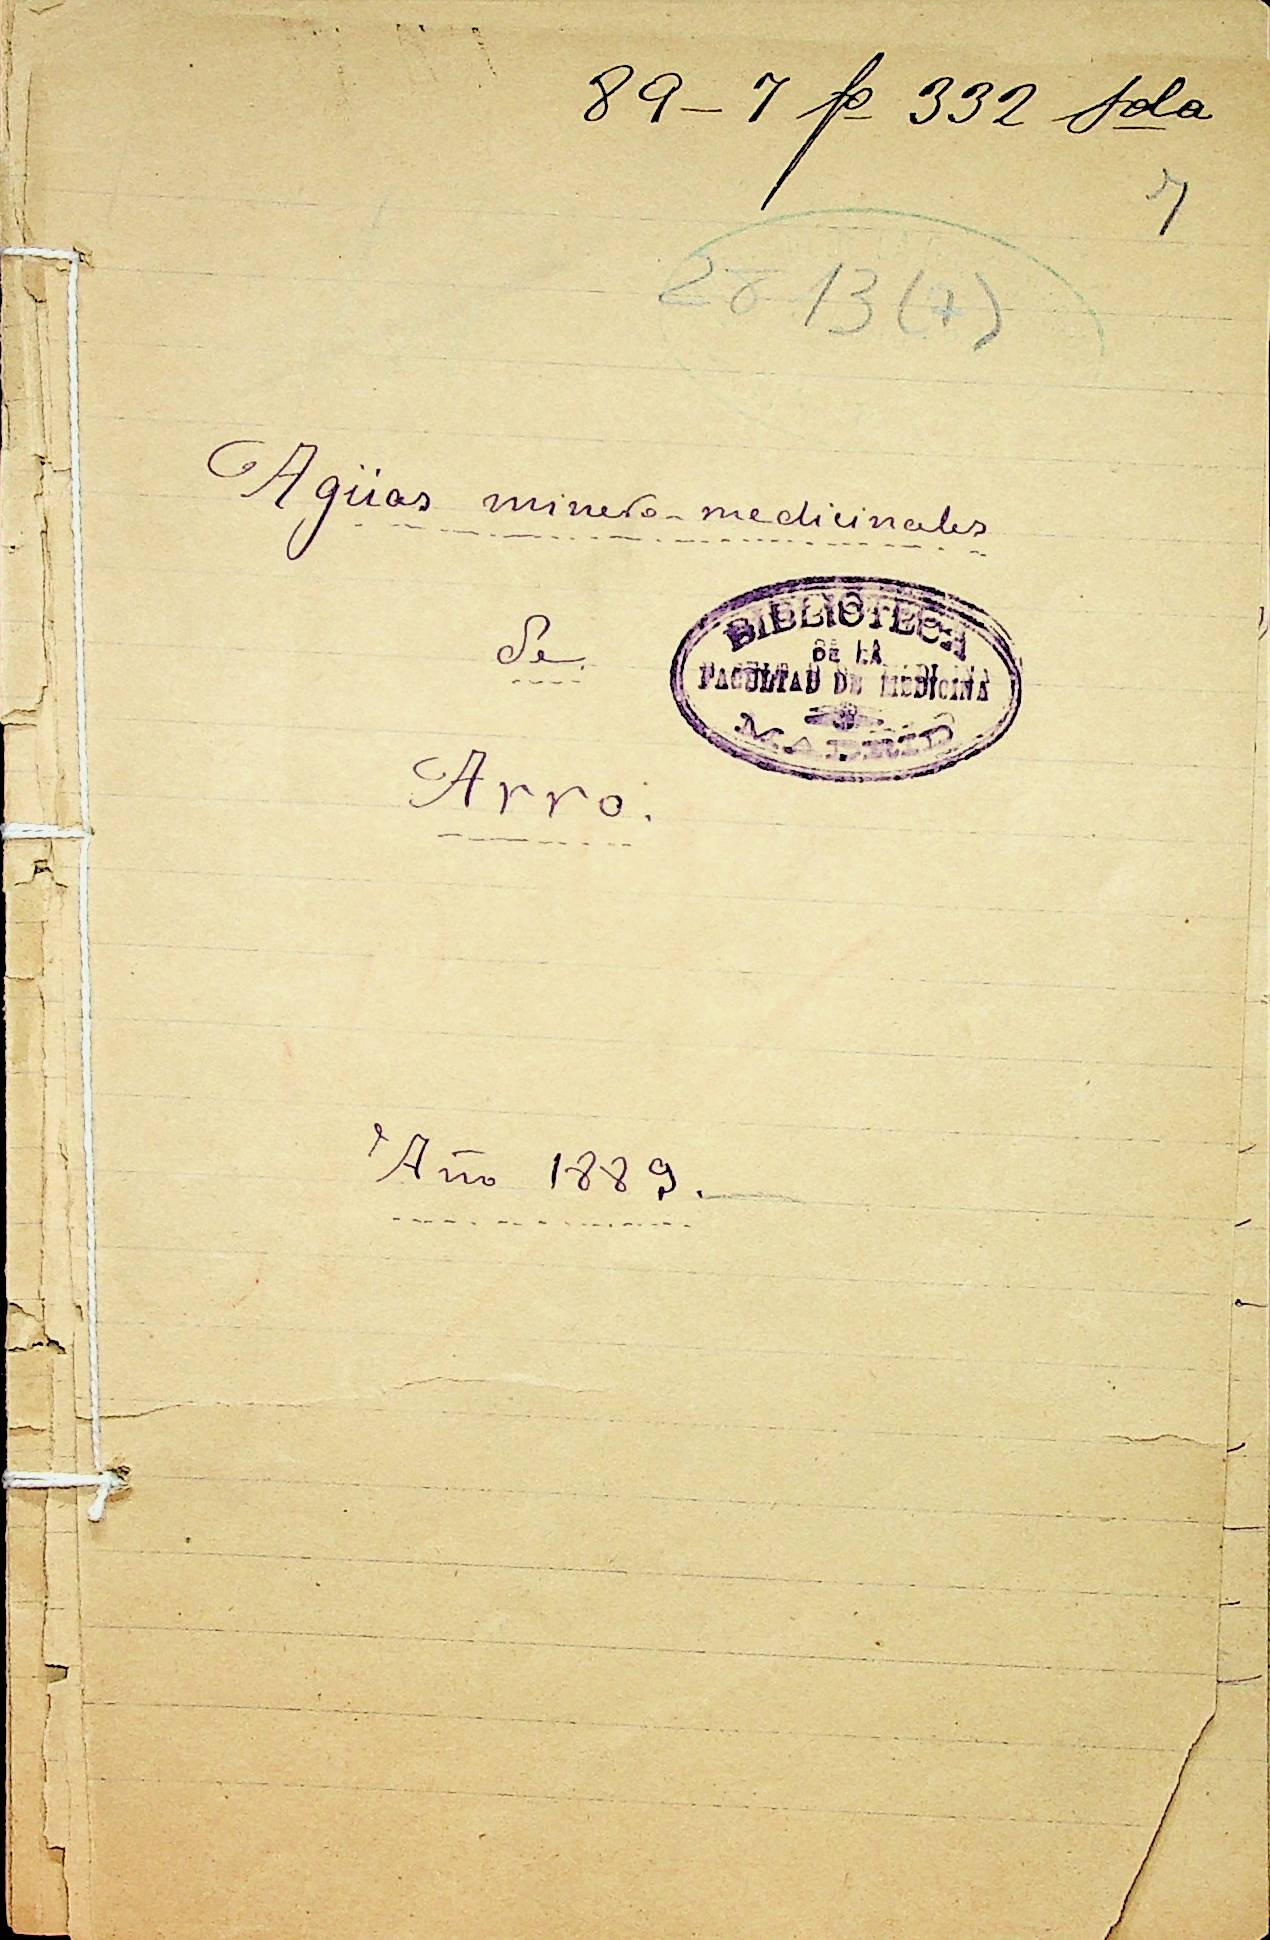 89-7 fo 332 Sda
7
28 13 (7)
Agüas minero-medicinales
de
BIBLIOTECA
DE LA
FACULTAD DE MEDICINA
MADRID
Arro.
Año 1889.